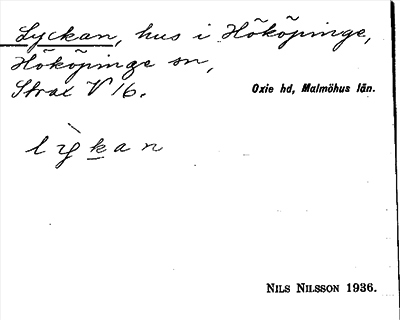 Lyckan, hus i Hököpinge,
Hököpinge sn,
Strax V 16.
Oxie hd, Malmöhus län.
lỳkan
NILS NILSSON 1936.